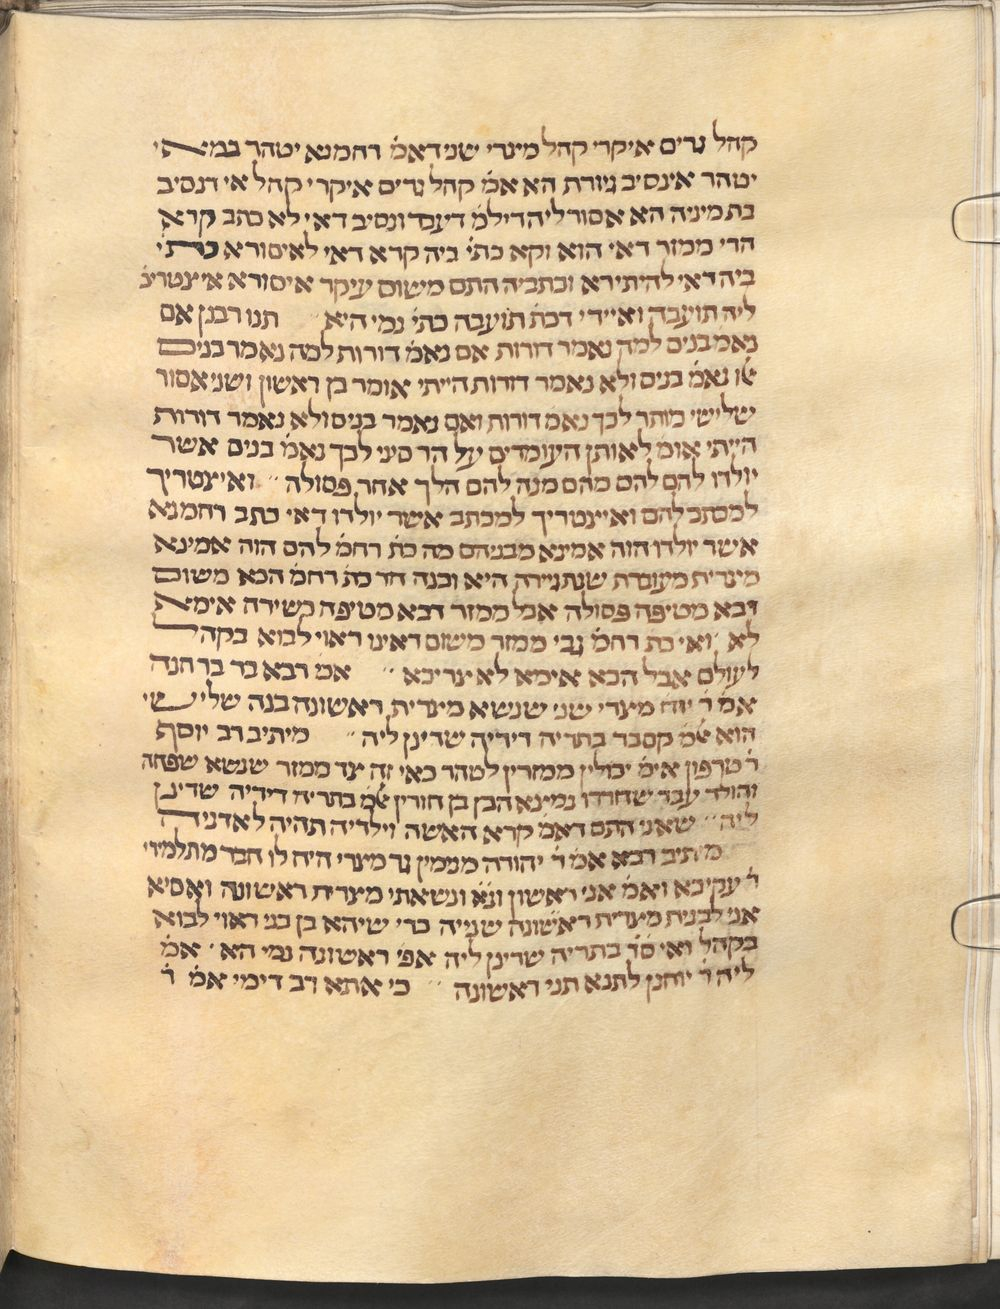 קהל גרים איקרי קהל מינרי שני דאמ׳ רחמנא יטהר במאי
יטהר אי נסיב גיורת הא אמ׳ קהל גרים איקרי קהל אי דנסיב
בת מיניה הא אסור ליה דילמ׳ דיעבד ונסיב דאי לא כתב קרא
הרי ממזר דאי הוא וקא כתי׳ ביה קרא דאי לאיסורא כתי׳
ביה דאי להיתירא וכתביה התם משום עיקר איסורא איצטריכ׳
ליה תועבה ואיידי דכת׳ תועבה כתי׳ נמי היא׳׳ תנו רבנן אם
נאמ׳ בנים למה נאמר דורות אם נאמ׳ דורות למה נאמר בנים
אלו נאמ׳ בנים ולא נאמר דורות הייתי אומר בן ראשון ושני אסור
שלישי מותר לכך נאמ׳ דורות ואם נאמר בנים ולא נאמר דורות
הייתי אומ׳ לאותן העומדים על הר סיני לכך נאמ׳ בנים אשר
יולדו להם להם מהם מנה להם הלך אחר פסולה׳׳ ואיצטריך
למכתב להם ואיצטריך למכתב אשר יולדו דאי כתב רחמנא
אשר יולדו הוה אמינא מבניהם מה כת׳ רחמ׳ להם הוה אמינא
מצרית מעוברת שנתגיירה היא ובנה חד כת׳ רחמ׳ הכא משום
דבא מטיפה פסולה אבל ממזר דבא מטיפה כשירה אימא
לא׳ ואי כת׳ רחמ׳ גבי ממזר משום דאינו ראוי לבוא בקהל
לעולם אבל הכא אימא לא צריכא׳׳ אמ׳ רבא בר בר חנה
אמ׳ ר׳ יוח׳ מצרי שני שנשא מצרית ראשונה בנה שלישי
הוא אלמ׳ קסבר בתריה דידיה שדינן ליה׳׳ מיתיב רב יוסף
ר׳ טרפון אימ׳ יכולין ממזרין לטהר כאי זה יצד ממזר שנשא שפחה
והולד עבד שחררו נמצא הבן בן חורין אלמ׳ בתריה דידיה שדינן
ליה׳׳ שאני התם דאמ׳ קרא האשה וילדיה תהיה לאדניה
מיתיב רבא אמ׳ ר׳ יהודה מנימין גר מצרי היה לו חבר מתלמידי
ר׳ עקיבא ואמ׳ אני ראשון ונש׳ ונשאתי מצרית ראשונה ואסיא
אני לבנית מצרית ראשונה שנייה כדי שיהא בן בני ראוי לבוא
בקהל ואי ס׳ד׳ בתריה שדינן ליה אפי׳ ראשונה נמי הא׳ אמ׳
ליה ר׳ יוחנן לתנא תני ראשונה׳׳ כי אתא רב דימי אמ׳ ר׳